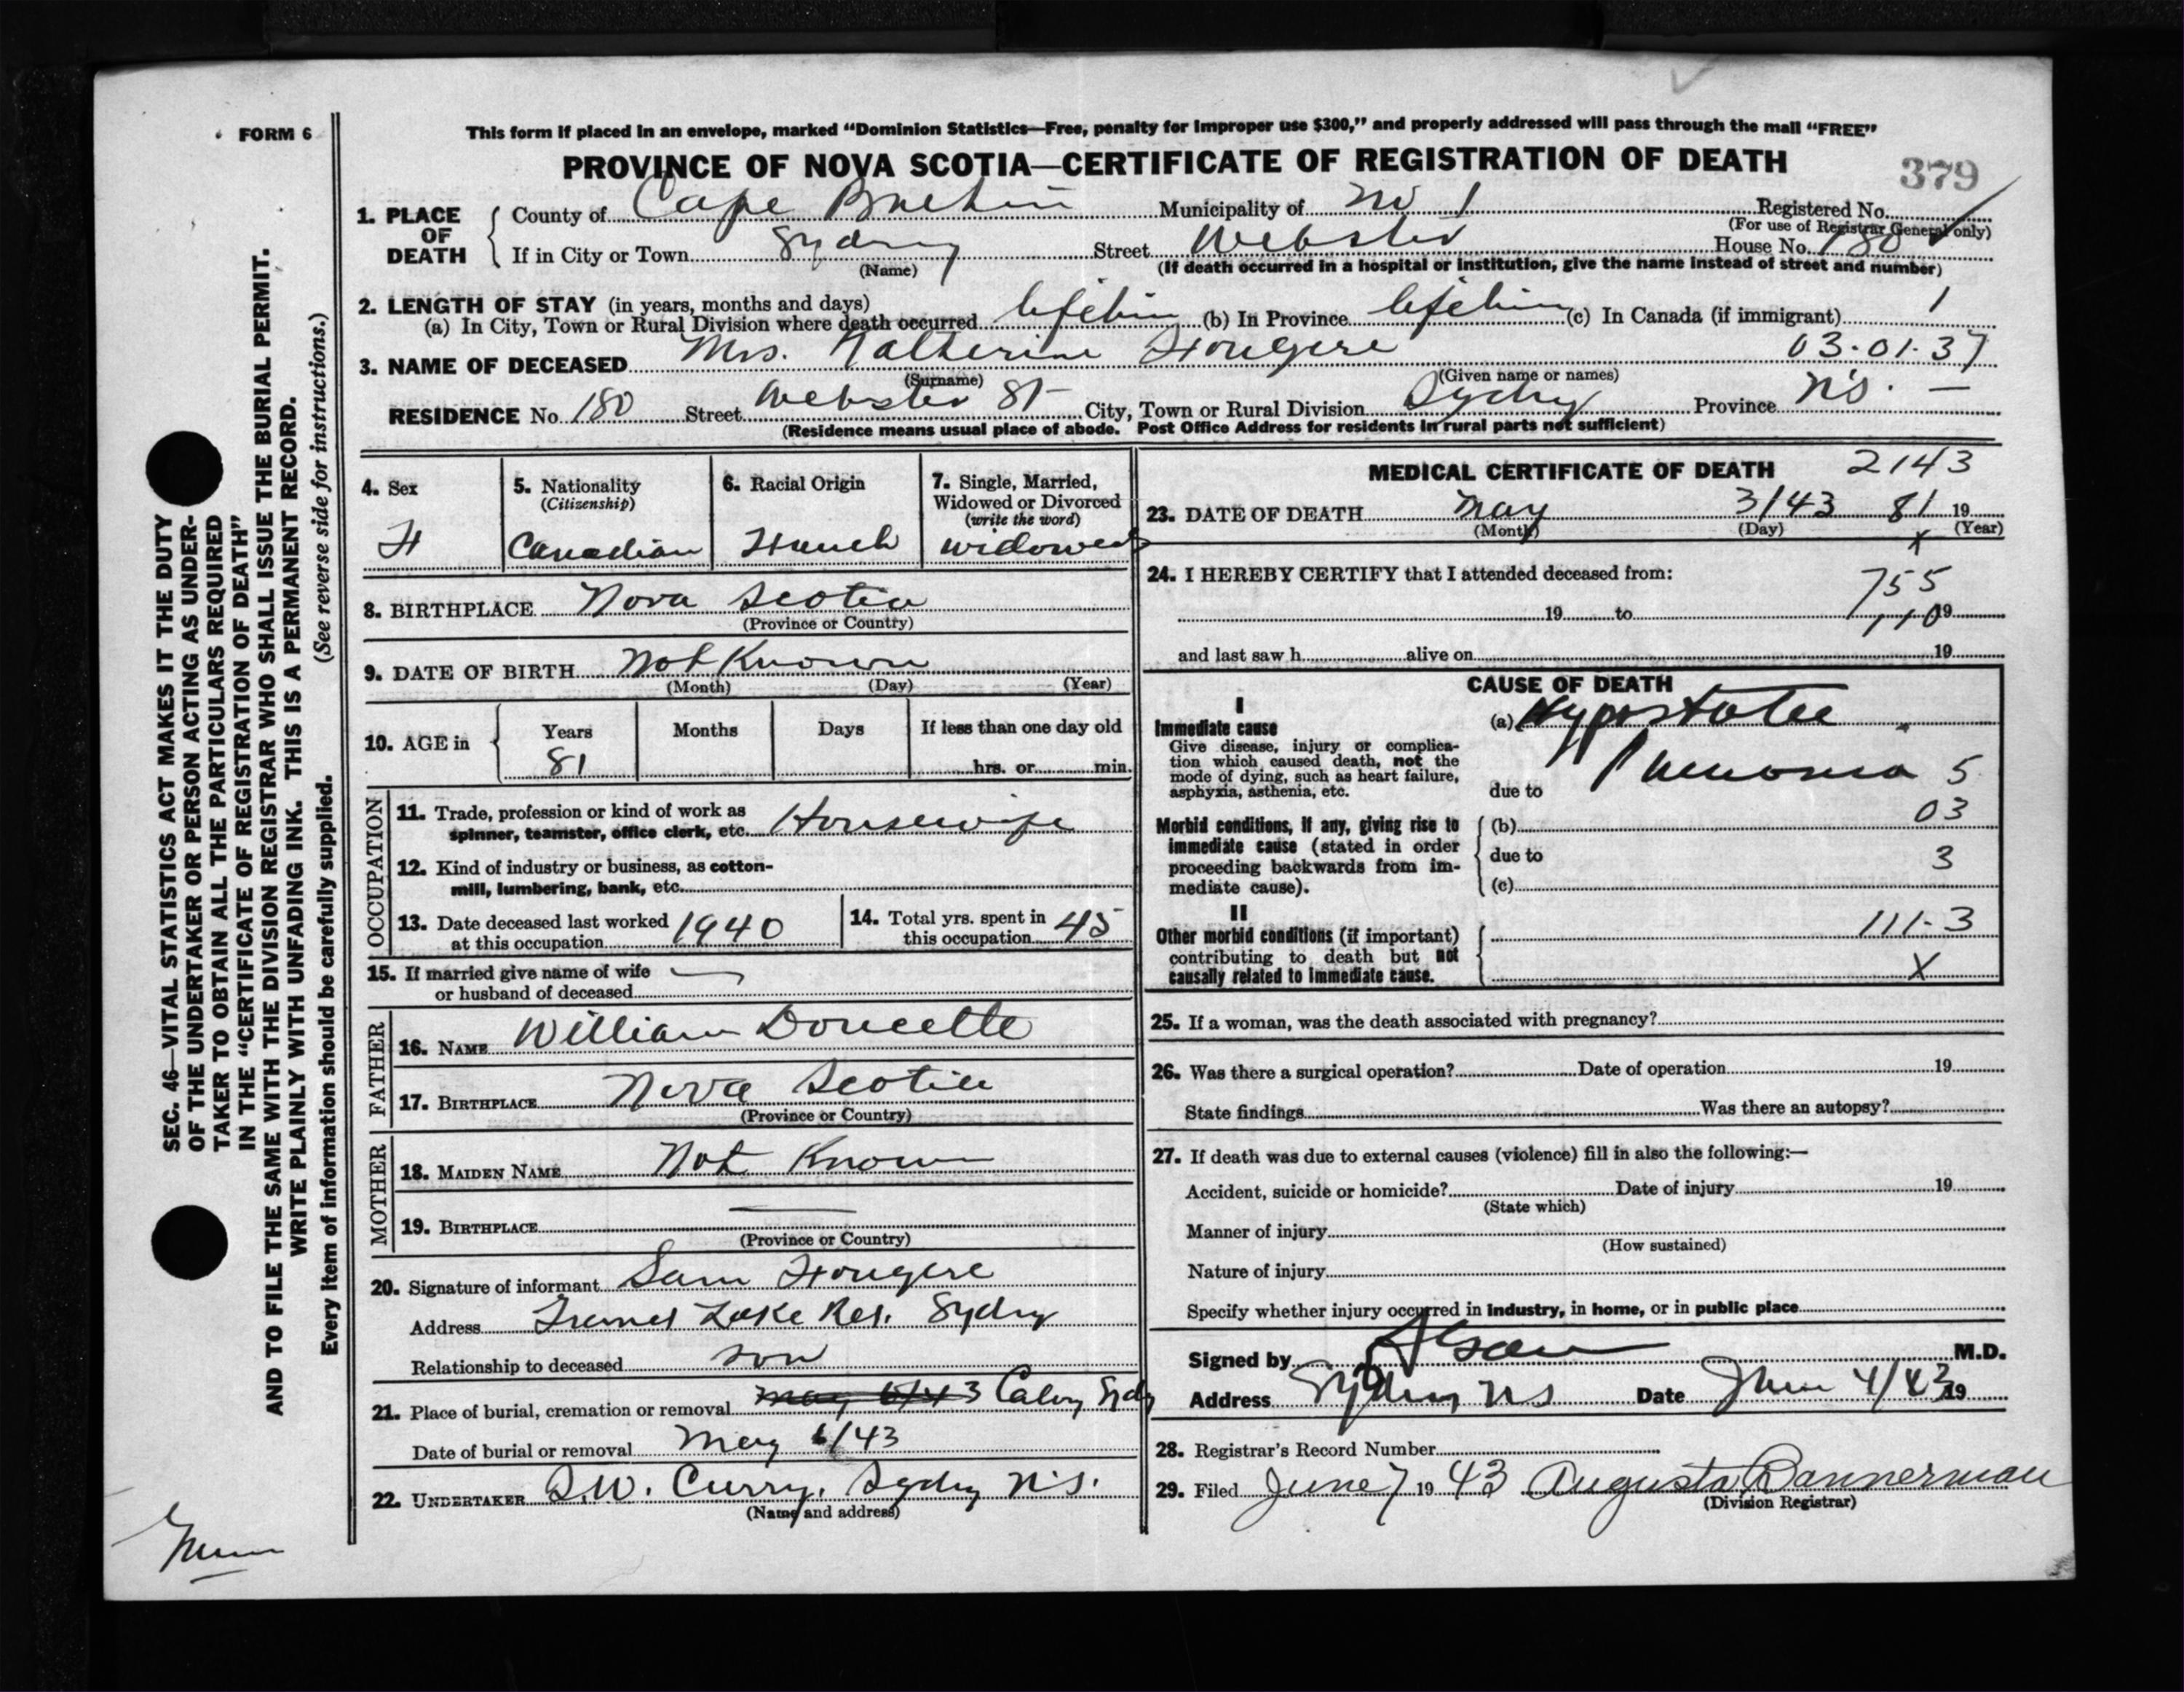 FORM 6
This form if placed in an envelope, marked "Dominion Statistics—Free, penalty for improper use $300," and properly addressed will pass through the mail "FREE"
PROVINCE OF NOVA SCOTIA—CERTIFICATE OF REGISTRATION OF DEATH
379
1. PLACE OF DEATH
County of Cape Breton Municipality of No 1 Registered No.
(For use of Registrar General only)
If in City or Town Sydney Street Webster House No. 180
(Name) (If death occurred in a hospital or institution, give the name instead of street and number)
2. LENGTH OF STAY (in years, months and days)
(a) In City, Town or Rural Division where death occurred lifetime (b) In Province lifetime (c) In Canada (if immigrant) 1
3. NAME OF DECEASED Mrs. Katherine Fougere 03-01-37
(Surname) (Given name or names)
RESIDENCE No. 180 Street Webster St City, Town or Rural Division Sydney Province N.S. —
(Residence means usual place of abode. Post Office Address for residents in rural parts not sufficient)
4. Sex F
5. Nationality (Citizenship) Canadian
6. Racial Origin French
7. Single, Married, Widowed or Divorced (write the word) widowed
8. BIRTHPLACE Nova Scotia
(Province or Country)
9. DATE OF BIRTH Not Known
(Month) (Day) (Year)
10. AGE in Years 81 Months Days If less than one day old hrs. or min.
OCCUPATION
11. Trade, profession or kind of work as spinner, teamster, office clerk, etc. Housewife
12. Kind of industry or business, as cotton-mill, lumbering, bank, etc.
13. Date deceased last worked at this occupation 1940
14. Total yrs. spent in this occupation 45
15. If married give name of wife or husband of deceased —
FATHER
16. NAME William Doucette
17. BIRTHPLACE Nova Scotia
(Province or Country)
MOTHER
18. MAIDEN NAME Not Known
19. BIRTHPLACE —
(Province or Country)
20. Signature of informant Sam Fougere
Address Lake Sydney
Relationship to deceased son
21. Place of burial, cremation or removal May 6/43 Calvry Sydy
Date of burial or removal May 6/43
22. UNDERTAKER W. Curry, Sydney N.S.
(Name and address)
MEDICAL CERTIFICATE OF DEATH 2143
23. DATE OF DEATH May 3/43 81 19
(Month) (Day) (Year)
x
24. I HEREBY CERTIFY that I attended deceased from:
755
19 to 19
110
and last saw h alive on 19
CAUSE OF DEATH
I
Immediate cause
Give disease, injury or complication which caused death, not the mode of dying, such as heart failure, asphyxia, asthenia, etc.
(a) Hypostatic
Pneumonia 5
due to
03
Morbid conditions, if any, giving rise to immediate cause (stated in order proceeding backwards from immediate cause).
(b)
due to 3
(c)
II
Other morbid conditions (if important) contributing to death but not causally related to immediate cause.
111-3
X
25. If a woman, was the death associated with pregnancy?
26. Was there a surgical operation? Date of operation 19
State findings Was there an autopsy?
27. If death was due to external causes (violence) fill in also the following:—
Accident, suicide or homicide? Date of injury 19
(State which)
Manner of injury
(How sustained)
Nature of injury
Specify whether injury occurred in industry, in home, or in public place
Signed by M.D.
Address Sydney NS Date June 4/43 19
28. Registrar's Record Number
29. Filed June 7 1943 Augusta Bannerman
(Division Registrar)
SEC. 46—VITAL STATISTICS ACT MAKES IT THE DUTY
OF THE UNDERTAKER OR PERSON ACTING AS UNDER-
TAKER TO OBTAIN ALL THE PARTICULARS REQUIRED
IN THE "CERTIFICATE OF REGISTRATION OF DEATH"
AND TO FILE THE SAME WITH THE DIVISION REGISTRAR WHO SHALL ISSUE THE BURIAL PERMIT.
WRITE PLAINLY WITH UNFADING INK. THIS IS A PERMANENT RECORD.
Every item of information should be carefully supplied. (See reverse side for instructions.)